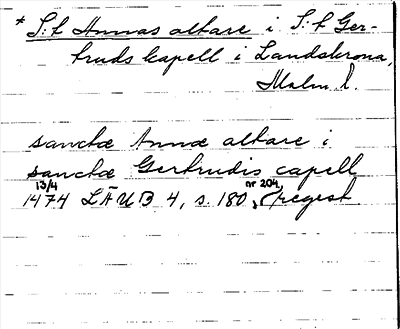 * S:t Annas altare i S:t Ger-
truds kapell i Landskrona,
Malm. l.
sanctæ Annæ altare i
sanctæ Gertrudis capell
13/4 nr 204
1474 LÄUB 4, s. 180, (regest